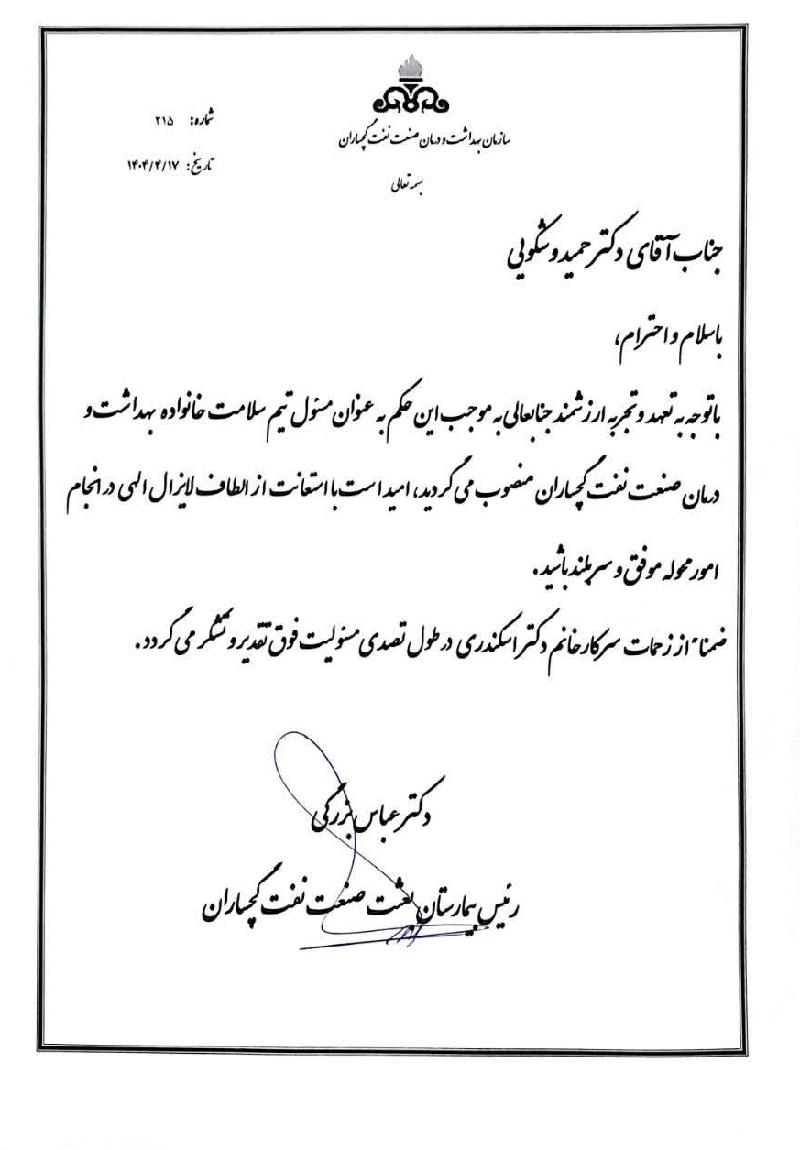 شماره: ۲۱۵
تاریخ: ۱۴۰۴/۴/۱۷
سازمان بهداشت و درمان صنعت نفت گچساران
بسمه تعالی
جناب آقای دکتر حمید وشکویی
باسلام و احترام،
باتوجه به تعهد و تجربه ارزشمند جنابعالی به موجب این حکم به عنوان مسئول تیم سلامت خانواده بهداشت و
درمان صنعت نفت گچساران منصوب می گردید، امید است با استعانت از الطاف لایزال الهی در انجام
امور محوله موفق و سربلند باشید.
ضمناً از زحمات سرکار خانم دکتر اسکندری در طول تصدی مسئولیت فوق تقدیر و تشکر می گردد.
دکتر عباس بزرگی
رئیس بیمارستان بعثت صنعت نفت گچساران